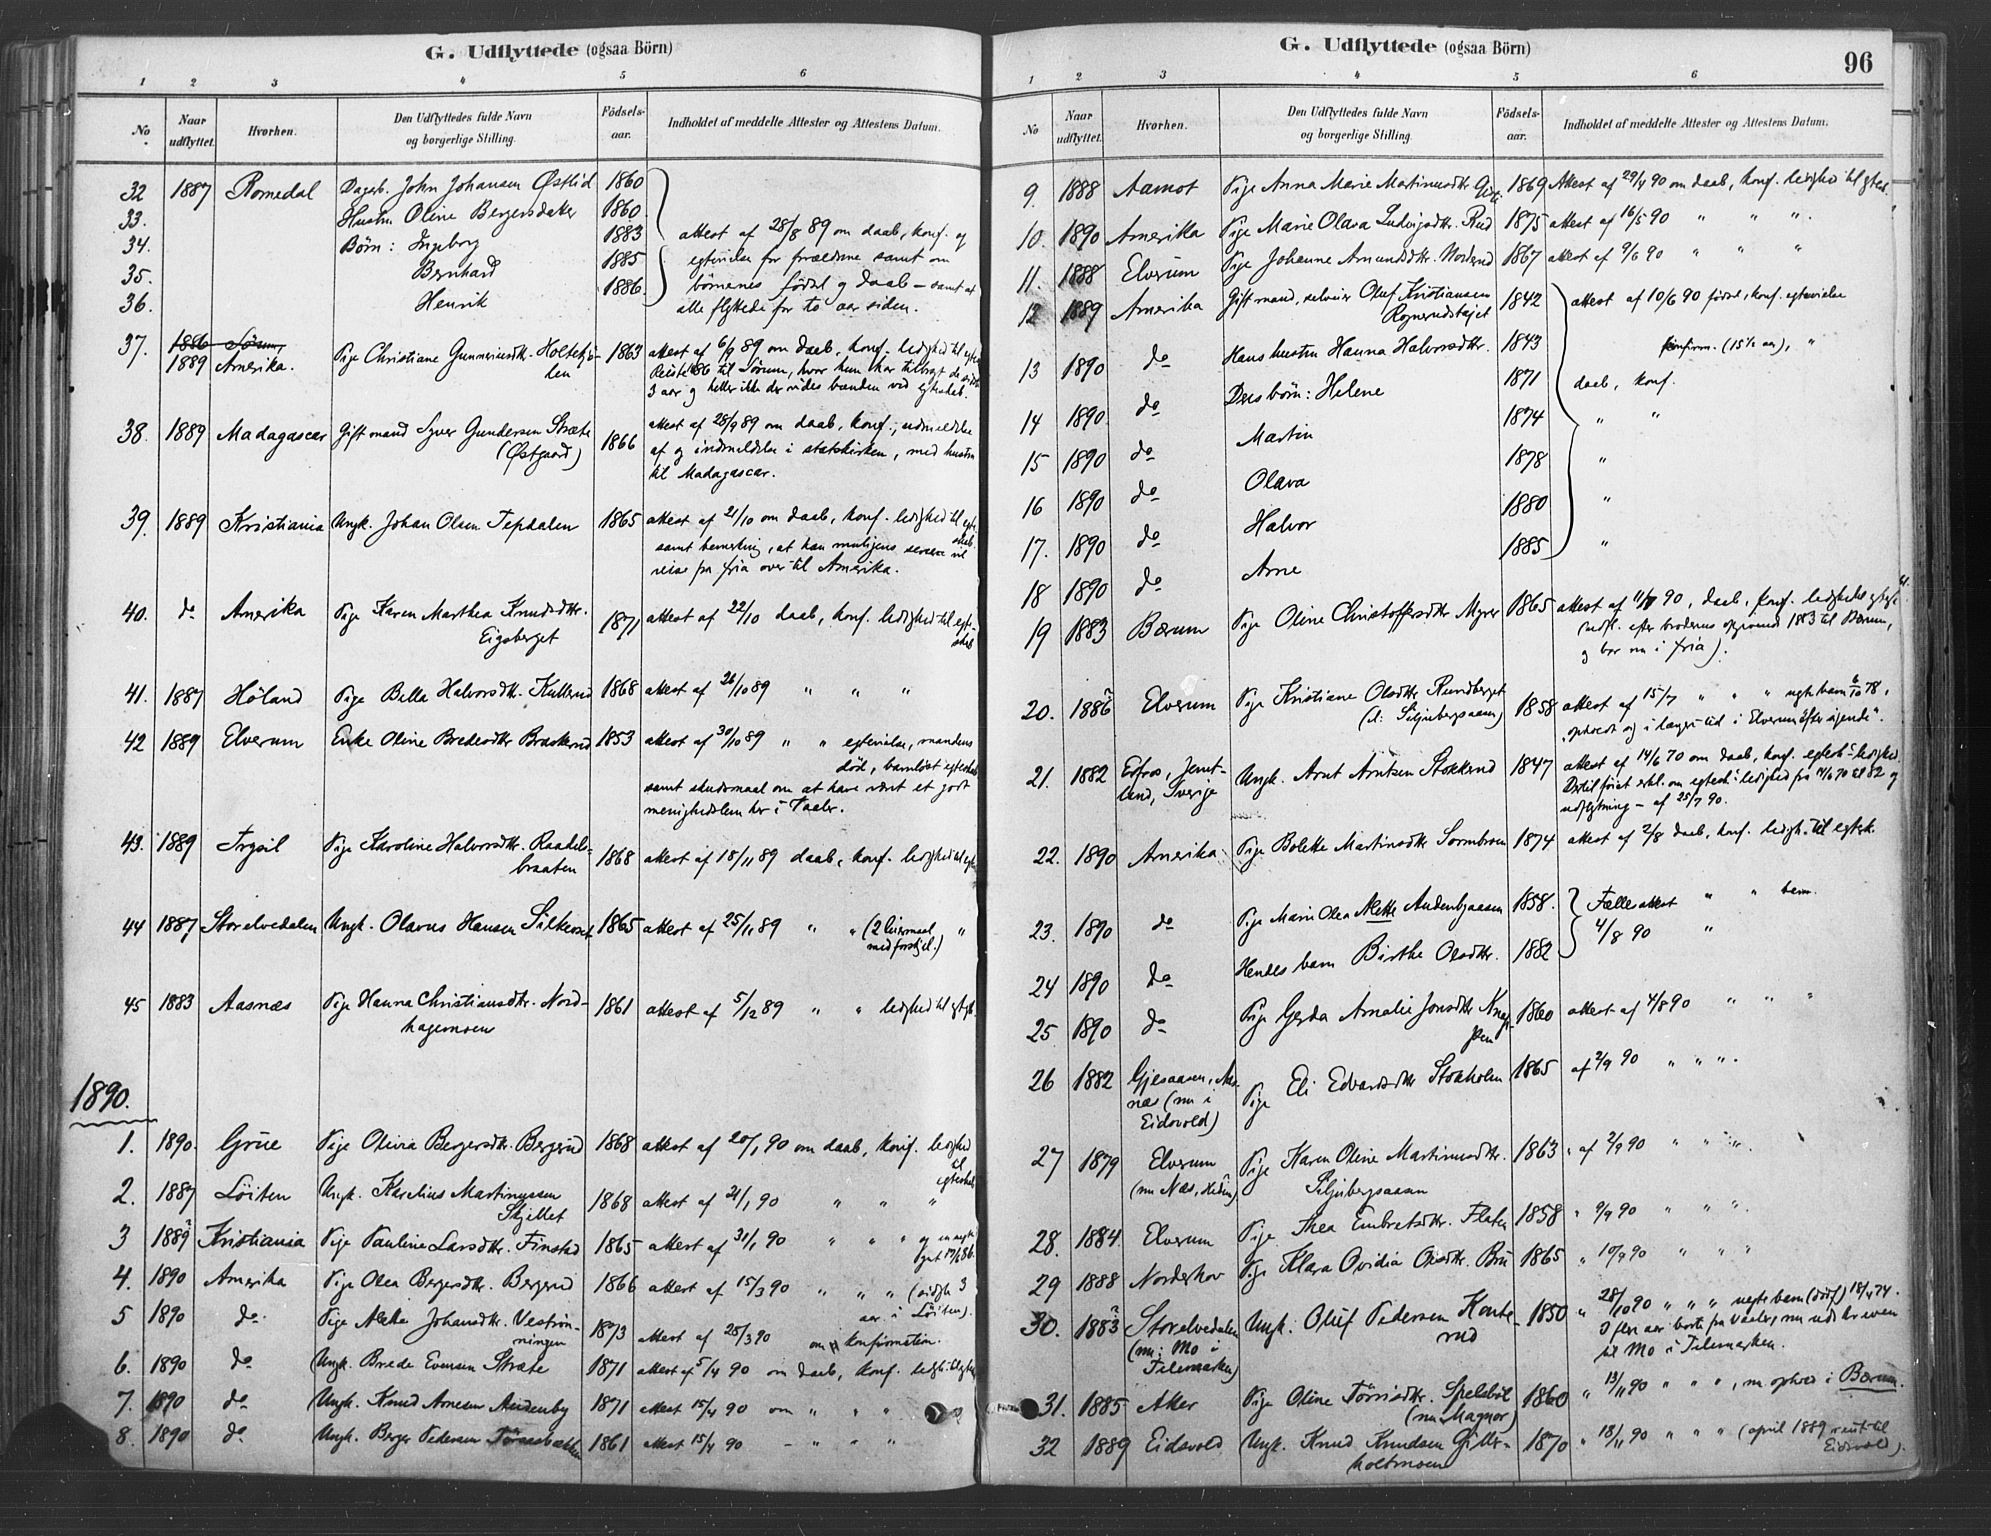 G. Udflyttede (ogsaa Börn)
1 2 3 4 5 6
No. Naar udflyttet. Hvorhen. Den Udflyttedes fulde Navn og borgerlige Stilling. Födsels-aar. Indholdet af meddelte Attester og Attestens Datum.
32 1887 Romedal Dagsb. John Johansen Østlid 1860
33. Hustru Oline Bergersdatter 1860
34. Börn: Ingeborg 1883 attest af 28/8 89 om daab, konf. og
35. Bernhard 1885 egtevielse for forældrene samt om
36. Henrik 1886 börnenes födsel og daab - samt at
alle flyttede for to aar siden.
37. 1886 Sørum,
1889 Amerika. Pige Christiane Gunneriusdtr. Holtekjö- 1863 attest af 6/9 89 om daab, konf. ledighed til egt.
len Reiste 86 til Sørum, hvor hun har tilbragt de sidste
3 aar og heller ikke der vides bunden ved egteskab.
38. 1889 Madagascar Gift mand Syver Gundersen Stræte 1866 attest af 28/9 89 om daab, konf., udmeldelse
(Østgaard) af og indmeldelse i statskirken, med hustru
til Madagascar.
39. 1889 Kristiania Ungk. Johan Olsen Tepdalen 1865 attest af 21/10 om daab, konf. ledighed til egte-
skab
samt bemerkning, at han muligens senere vil
reise fra Kria over til Amerika.
40. do Amerika Pige Karen Marthea Knudsdtr. 1871 attest af 22/10 daab, konf. ledighed til egte-
Eigsberget skab
41. 1887 Höland Pige Bella Halvorsdtr. Kullerud 1868 attest af 26/10 89 " " "
42 1889 Elverum Enke Oline Bredesdtr Braskerud 1853 attest af 30/10 89 " " egtevielse, mandens
död, barnlöst egteskab
samt skudsmaal om at have været et godt
menighedslem her i Vaaler.
43. 1889 Trysil Pige Karoline Halvorsdtr. Raadels- 1868 attest af 18/11 89 daab, konf. ledighed til egte
braaten
44 1887 Storelvedalen Ungk. Olavus Hansen Silkeset 1865 attest af 25/11 89 " " (2 leiermaal "
med forskjel.)
45 1883 Aasnæs Pige Hanna Christiansdtr. Nord- 1861 attest af 5/12 89 " " ledighed til egtsk.
hagemoen
1890.
1. 1890. Grue Pige Olivia Bergersdtr. Bergerud 1868 attest af 20/1 90 om daab, konf. ledighed
til
egteskab
2. 1887 Löiten Ungk. Karelius Martinussen 1868 attest af 21/1 90 " " "
Skjellet
3 1889 Kristiania Pige Pauline Larsdtr. Finstad 1865 attest af 31/1 90 " " "
4. 1890 Amerika Pige Olea Bergersdtr. Bergerud 1866 attest af 15/3 90 " " " (sidste 3
aar i Löiten).
5 1890 do Pige Alette Johansdtr. Veströn- 1873 attest af 28/3 90 om konfirmation.
ningen
6. 1890 do Ungk. Brede Evensen Stræte 1871 attest af 5/4 90 om daab, konf. ledigh. til egtsk
7. 1890 do Ungk. Knud Arnesen Audenby 1871 attest 15/4 90 om " " "
8. 1890 do Ungk. Berger Pedersen 1861 attest 15/4 90 - " " "
G. Udflyttede (ogsaa Börn) 96
1 2 3 4 5 6
No Naar udflyttet. Hvorhen. Den Udflyttedes fulde Navn og borgerlige Stilling. Födsels-aar. Indholdet af meddelte Attester og Attestens Datum.
9. 1888 Aamot Pige Anna Marie Martinusdtr 1869 Attest af 29/4 90 om daab, konf. ledighed til egtesk.
10. 1890 Amerika Pige Marie Olava Ludvigsdtr. Rud 1875 attest af 16/5 90 " " "
11. 1888 Elverum Pige Johanne Amundsdtr. Norderud 1867 attest af 9/6 90 " " "
12 1889 Amerika Gift mand, selveier Oluf Kristiansen 1842 attest af 10/6 90 födsel, konf. egtevielse
Rognerudstöjet
13 1890 do Hans hustru Hanna Halvorsdtr. 1843 konfirm. (15 1/2 aar), "
14 1890 do Deres börn: Helene 1871 daab, konf.
15 1890 do Martin 1874 " "
16 1890 do Olava 1878 "
17. 1890 do Halvor 1880 "
18 1890 do Arne 1885 "
19 1883 Bærum Pige Oline Christoffersdtr Myrer 1865 attest af 11/7 90, daab, konf. ledighed egtesk.
(udfl. efter broderens opgivende 1883 til Bærum,
og bor nu i Kria).
20. 1886 Elverum Pige Kristiane Olsdtr Rundberget 1858 attest af 15/7 " " " uegte barn 6/10 78,
(d: Siljubergsaasen) "opholdt sig i længre tid i Elverum efter sigende".
21. 1882 Edfros, Jemt- Ungk. Arnt Arntsen Stokkerud 1847 attest af 14/6 70 om daab, konf. egtesk.-ledighed.
land, Sverige Dertil föiet erkl. om egtesk.-ledighed fra 14/6 70 til 82 og
udflytning - af 25/7 90.
22. 1890 Amerika Pige Bolette Martinsdtr Sormbroen 1874 attest af 2/8 daab, konf. ledigh. til egtesk.
23. 1890 do Pige Marie Olea Alette Audenbyaasen 1858. Fælles attest " " barn
24 1890 do Hendes barn Birthe Olsdtr. 1882 4/8 90 "
25 1890 do Pige Gerda Amalie Jonsdtr Knap- 1860 attest af 4/8 90 " " "
pen
26 1882 Gjesaasen, Aas- Pige Eli Edvardsdtr Stokholm 1865 af 2/9 90 " " "
næs (nu i
Eidsvold)
27 1879 Elverum Pige Karen Oline Martinusdtr. 1863 " af 2/9 90 " " "
(nu Næs, Hedem) Siljubergsaasen
28. 1884 Elverum Pige Thea Embretsdtr. Flaten 1858 " 9/9 90 " " "
29 1888 Norderhov Pige Klara Ovidia Olsdtr. Bru 1865 " 10/9 90 " " "
30. 1883 Storelvedalen Ungk. Oluf Pedersen Konte- 1850 " 28/10 90 " " " uegte barn (död) 18/4 74.
(nu: Mo i rud I flere aar borte fra Vaaler, nu udskreven
Telemarken) til Mo i Telemarken.
31. 1885 Aker Pige Oline Törrisdtr. Spelsböl 1860 " 13/11 90 " " ", nu ophold i Bærum.
(nu Magnor)
32 1889 Eidsvold Ungk. Knud Knudsen Gitter- 1870 " 18/11 90 " " " (april 1889 reist til
holtmoen Eidsvold).